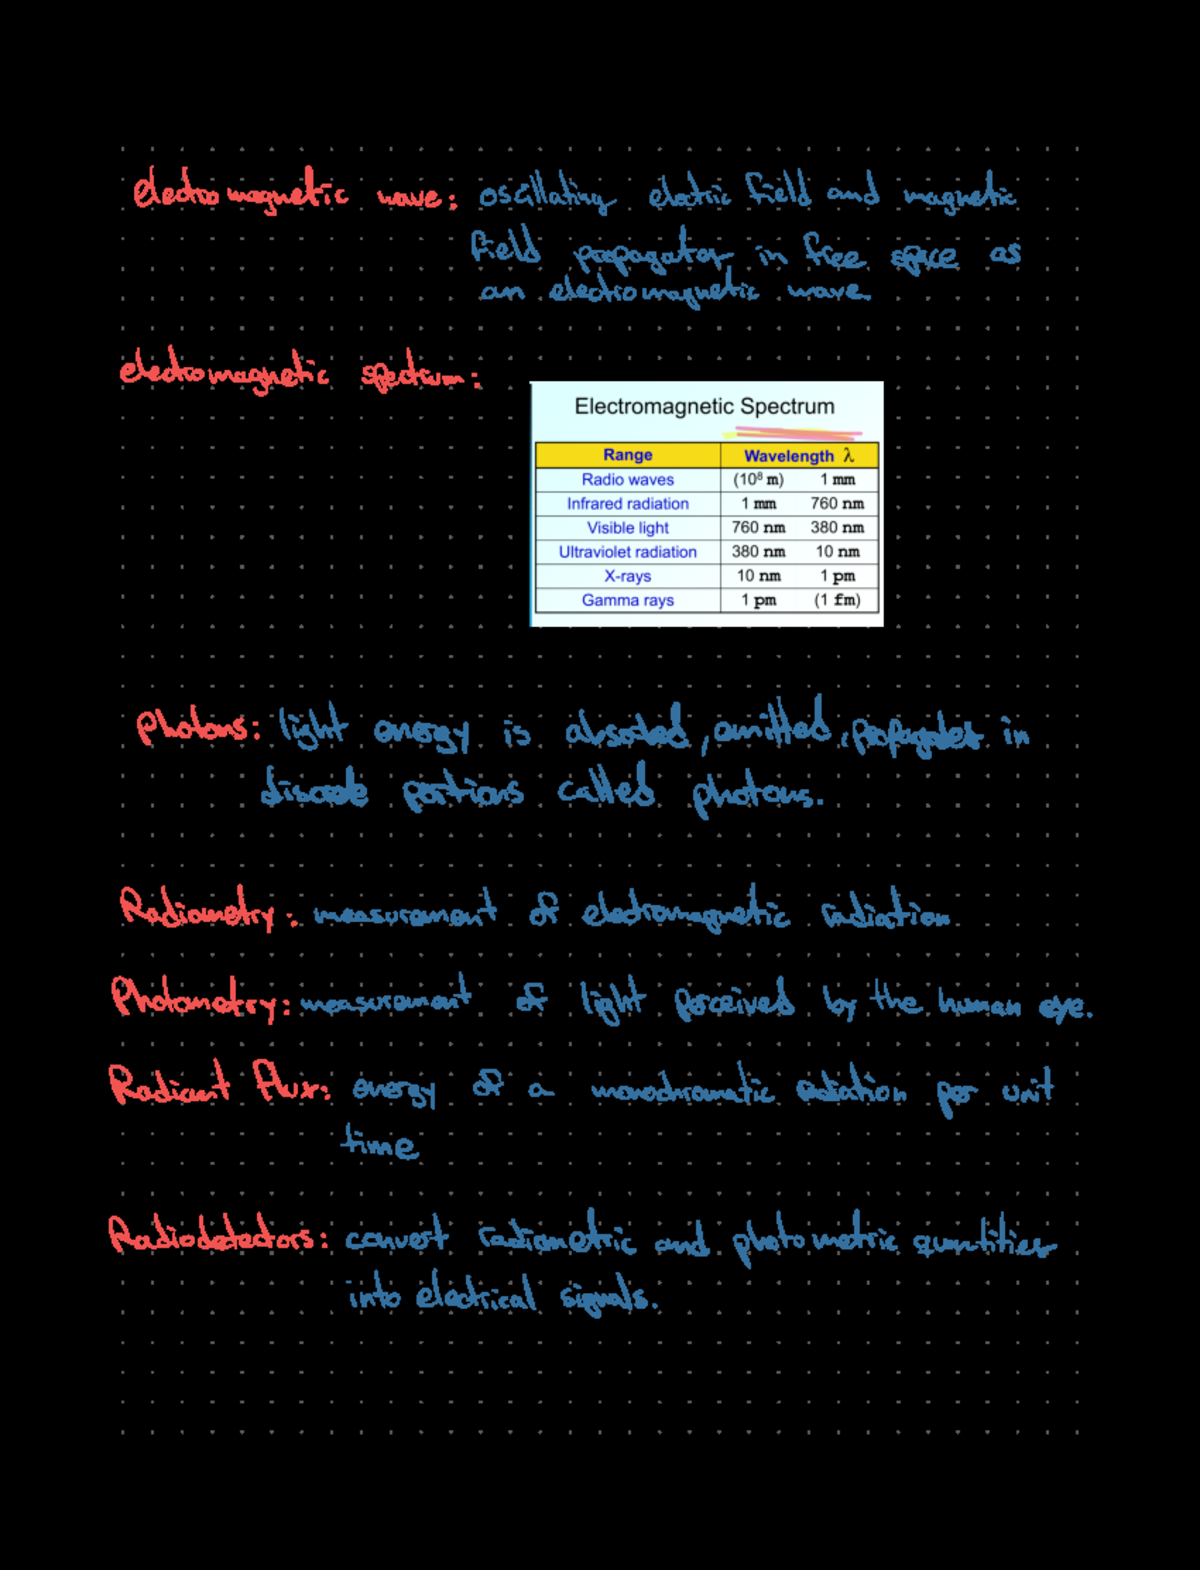 electromagnetic wave: oscillating electric field and magnetic
field propagates in free space as
an electromagnetic wave.
electromagnetic spectrum:
Electromagnetic Spectrum
Range Wavelength λ
Radio waves (10⁸ m) 1 mm
Infrared radiation 1 mm 760 nm
Visible light 760 nm 380 nm
Ultraviolet radiation 380 nm 10 nm
X-rays 10 nm 1 pm
Gamma rays 1 pm (1 fm)
Photons: light energy is absorbed, emitted, propagates in
discrete portions called photons.
Radiometry: measurement of electromagnetic radiation
Photometry: measurement of light perceived by the human eye.
Radiant Flux: energy of a monochromatic radiation per unit
time
Radiodetectors: convert radiometric and photometric quantities
into electrical signals.